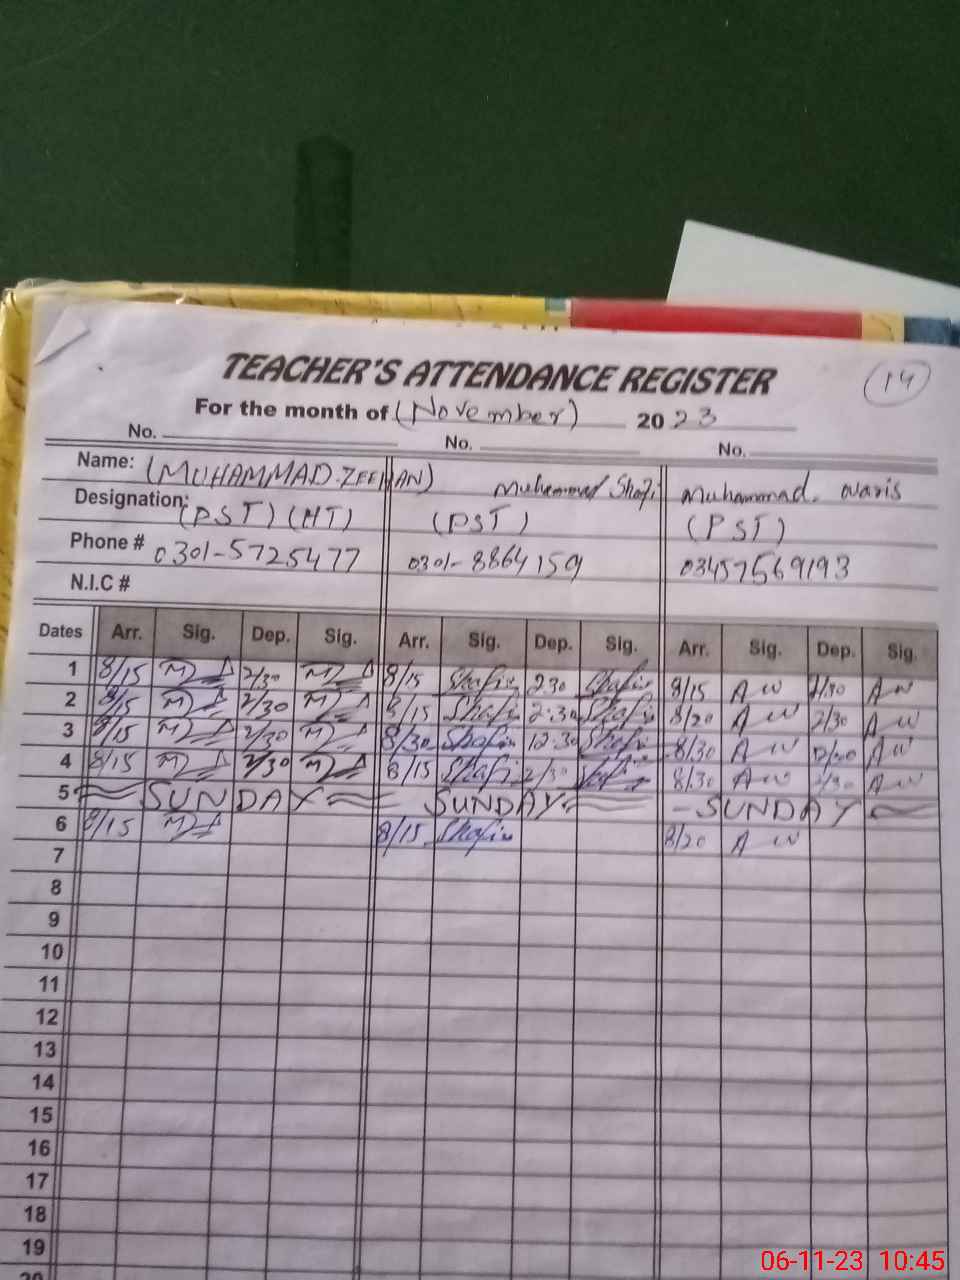 TEACHER'S ATTENDANCE REGISTER
14
For the month of (November) 2023
No. No. No.
Name: (MUHAMMAD.ZEEHAN) Muhammad Shafi Muhammad. waris
Designation: (PST) (HT) (PST) (PST)
Phone # 0301-5725477 0301-8864159 03457569193
N.I.C #
Dates Arr. Sig. Dep. Sig. Arr. Sig. Dep. Sig. Arr. Sig. Dep. Sig.
1 8/15 2/30 8/15 Shafi 230 Shafi 8/15 A W 2/30 A W
2 8/15 2/30 8/15 Shafi 2:30 Shafi 8/20 A W 2/30 A W
3 8/15 2/30 8/30 Shafi 12:30 Shafi 8/30 A W A W
4 8/15 2/30 8/15 Shafi 2/30 Shafi 8/30 A W 2/30 A W
5 SUNDAY SUNDAY - SUNDAY
6 8/15 8/15 Shafi 8/20 A W
7
8
9
10
11
12
13
14
15
16
17
18
19
20
06-11-23 10:45